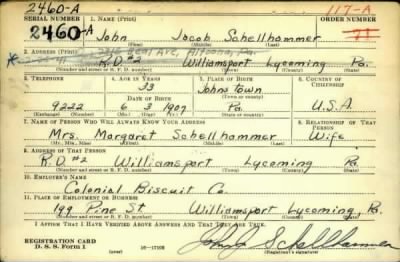 2460-A
117-A
SERIAL NUMBER 1. NAME (Print) ORDER NUMBER
2460-A John Jacob Schellhammer 71
(First) (Middle) (Last)
2. ADDRESS (Print) Ave, Altoona, Pa.
R.D. #2 Williamsport Lycoming Pa.
(Number and street or R. F. D. number) (Town) (County) (State)
3. TELEPHONE 4. AGE IN YEARS 5. PLACE OF BIRTH 6. COUNTRY OF CITIZENSHIP
33 Johnstown
DATE OF BIRTH (Town or county)
9222 6 3 1907 Pa. U.S.A.
(Exchange) (Number) (Mo.) (Day) (Yr.) (State or country)
7. NAME OF PERSON WHO WILL ALWAYS KNOW YOUR ADDRESS 8. RELATIONSHIP OF THAT PERSON
Mrs. Margaret Schellhammer Wife
(Mr., Mrs., Miss) (First) (Middle) (Last)
9. ADDRESS OF THAT PERSON
R.D. #2 Williamsport Lycoming Pa
(Number and street or R. F. D. number) (Town) (County) (State)
10. EMPLOYER'S NAME
Colonial Biscuit Co.
11. PLACE OF EMPLOYMENT OR BUSINESS
199 Pine St. Williamsport Lycoming Pa.
(Number and street or R. F. D. number) (Town) (County) (State)
I AFFIRM THAT I HAVE VERIFIED ABOVE ANSWERS AND THAT THEY ARE TRUE.
REGISTRATION CARD
D. S. S. Form 1 (over) 16—17105 John J Schellhammer
(Registrant's signature)